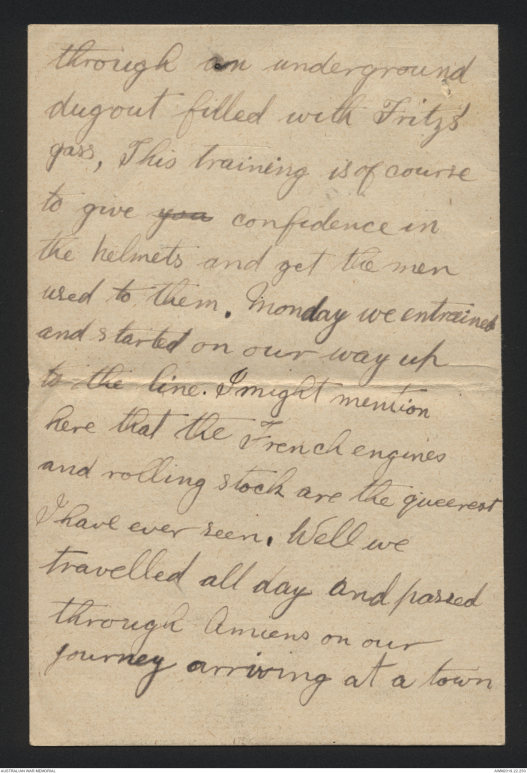 through an underground
dugout filled with Fritzs'
gass, This training is of course
to give you confidence in
the helmets and get the men
used to them. Monday we entrained
and started on our way up
to the line. I might mention
here that the French engines
and rolling stock are the queerest
I have ever seen. Well we
travelled all day and passed
through Amiens on our
journey arriving at a town
AUSTRALIAN WAR MEMORIAL